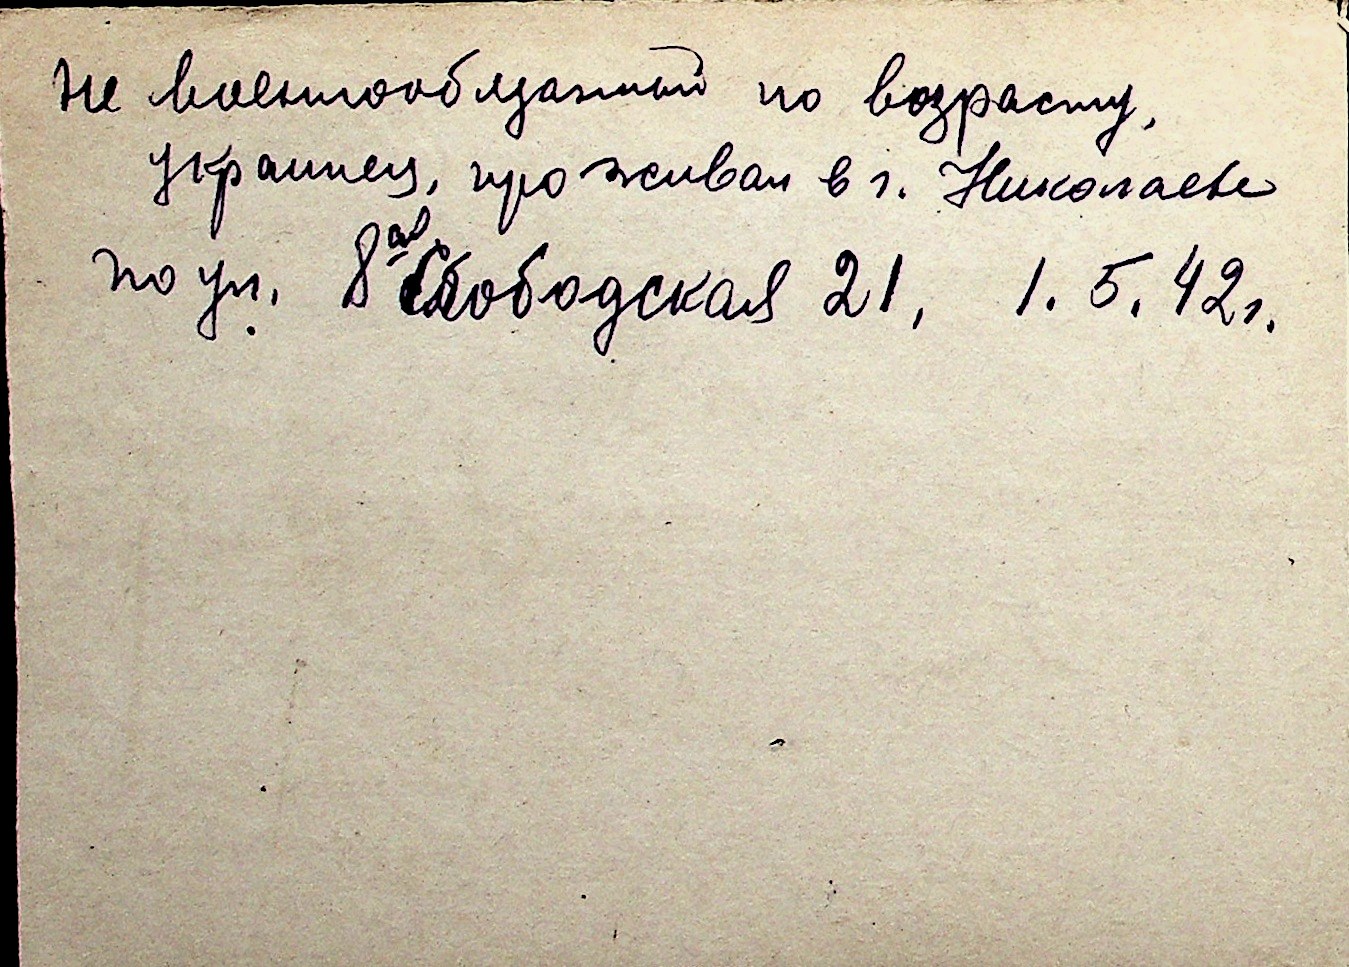 не военнообязанный по возрасту,
украинец, проживал в г. Николаеве
по ул. 8ая Слободская 21, 1.5.42г.